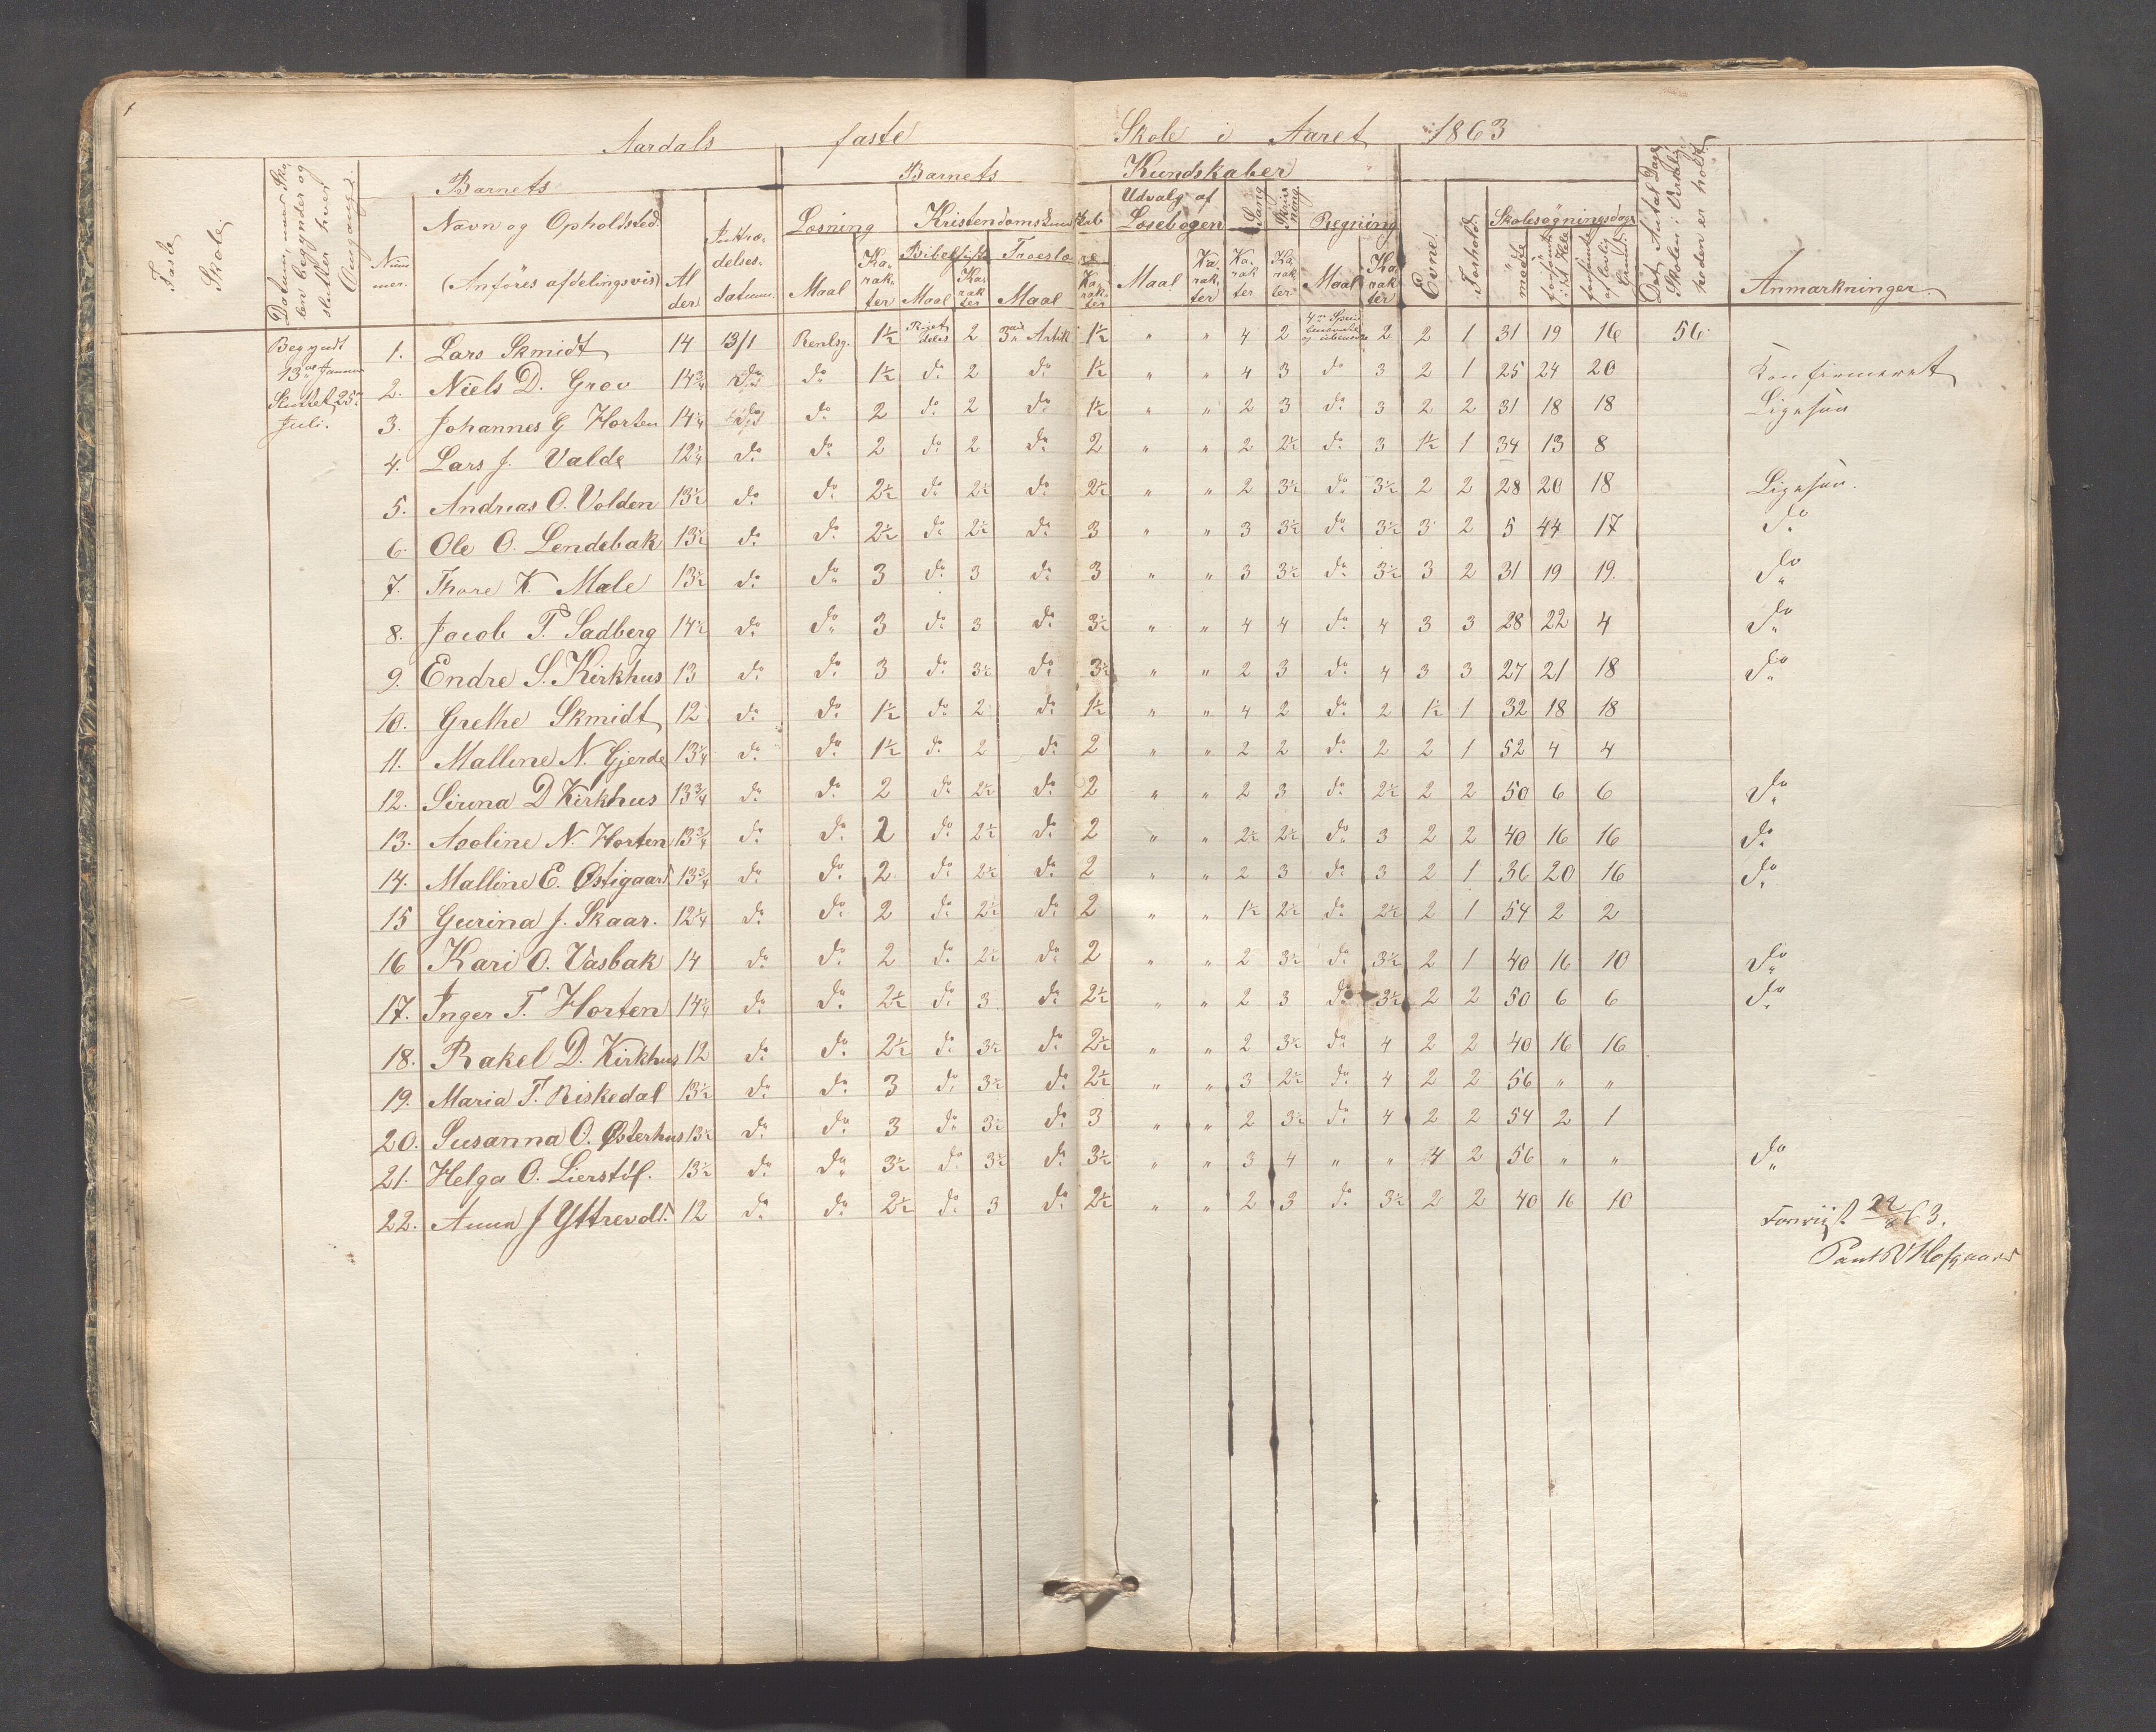 Aardals faste Skole i Aaret 1863
Faste Skole
Datum, naar Skolen begynder og slutter hver Omgang.
Barnets
Nummer.
Navn og Opholdsted. (Anføres afdelingsvis)
Alder
Indtrædelses-datum.
Barnets Kundskaber
Læsning
Maal Karakter
Kristendomskundskab
Bibelhist. Maal Karakter
Troeslære Maal Karakter
Udvalg af Læsebogen
Maal Karakter
Sang Karakter
Skrivning. Karakter
Regning
Maal Karakter
Evne
Forhold
Skolesøgningsdage
mødte
forsømte i det Hele
forsømte af lovlig Grund.
Det Antal Dage Skolen i Virkeligheden er holdt
Anmærkninger.
Begyndt 13de Januar
Sluttet 25de Juli.
1. Lars Skmidt 14 13/1 Renlsg. 1½ 2 3die Artik 1½ " " 4 2 2 2 1 31 19 16 56
2. Niels D. Grov 14¾ do do 1½ do 2 do 1½ " " 4 3 do 3 2 1 25 24 20 Konfirmeret
3. Johannes G Horten 14¼ do do 2 do 2 do 1½ " " 2 3 do 3 2 2 31 18 18 Ligesaa
4. Lars J. Valde 12¼ do do 2 do 2 do 2 " " 2 2½ do 3 1½ 1 34 13 8
5. Andreas O. Volden 13½ do do 2½ do 2½ do 2½ " " 2 3½ do 3½ 2 2 28 20 18 Ligesaa.
6. Ole O. Lendebak 13½ do do 2½ do 2½ do 3 " " 3 3½ do 3½ 3 2 5 44 17 do
7. Thore K. Mæle 13½ do do 3 do 3 do 3 " " 3 3½ do 3½ 3 2 31 19 19. do
8. Jacob T. Sadberg 14½ do do 3 do 3 do 3½ " " 4 4 do 4 3 3 28 22 4 do
9. Endre S. Kirkhus 13 do do 3 do 3½ do 3½ " " 2 3 do 4 3 3 27 21 18 do
10. Grethe Skmidt 12 do do 1½ do 2 do 1½ " " 4 2 do 2 1½ 1 32 18 18
11. Malline N. Gjerde 13¼ do do 1½ do 2 do 2 " " 2 2 do 2 2 1 52 4 4
12. Sirena D Kirkhus 13¾ do do 2 do 2½ do 2 " " 2 3 do 2½ 2 2 50 6 6 do
13. Axeline N. Horten 13¾ do do 2 do 2½ do 2 " " 2½ 2½ do 3 2 2 40 16 16 do
14. Malline E. Østigaard 13¾ do do 2 do 2½ do 2 " " 2 3 do 3 2 1 36 20 16 do
15 Gurina J. Skaar. 12¼ do do 2 do 2½ do 2 " " 1½ 2½ do 2½ 2 1 54 2 2
16 Kari O. Vasbak 14 do do 2 do 2½ do 2 " " 2 3½ do 3½ 2 1 40 16 10 do
17. Inger T. Horten 14¼ do do 2½ do 3 do 2½ " " 2 3 do 3½ 2 2 50 6 6 do
18. Rakel D. Kirkhus 12 do do 2½ do 3½ do 2½ " " 2 3½ do 4 2 2 40 16 16
19. Maria T. Riskedal 13½ do do 3 do 3½ do 2½ " " 3 2½ do 4 2 2 56 " "
20. Susanna O. Østerhus 13½ do do 3 do 3½ do 3 " " 2 3½ do 4 2 2 54 2 1
21. Helga O. Lierstøl. 13½ do do 3½ do 3½ do 3½ " " 3 4 " " 4 2 56 " " do
22. Anna J 12 do do 2½ do 3 do 2½ " " 2 3 do 3½ 2 2 40 16 10
Forevist 63.
Hofgaard